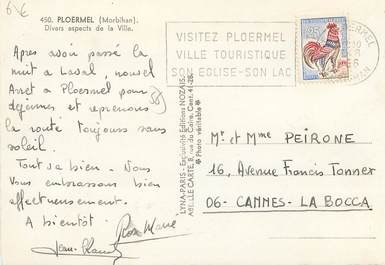 6x€
450. PLOERMEL (Morbihan).
Divers aspects de la Ville.
VISITEZ PLOERMEL
VILLE TOURISTIQUE
SON EGLISE-SON LAC
Apres avoir passé la
nuit a Laval, nouvel
Arret a Ploermel pour
déjeuner et reprenons (56)
la route toujours sans
soleil.
Tout va bien. Nous
Vous embrassons bien
affectueusement.
A bientôt.
Rose Marie
Jean-Claude
LYNA-PARIS - Exclusivité Editions NOZAIS
ABEILLE CARTE, 8, rue du Caire. Cent. 41-26
Photo véritable
Mr et Mme PEIRONE
16, Avenue Francis Tonner
06- CANNES-LA BOCCA